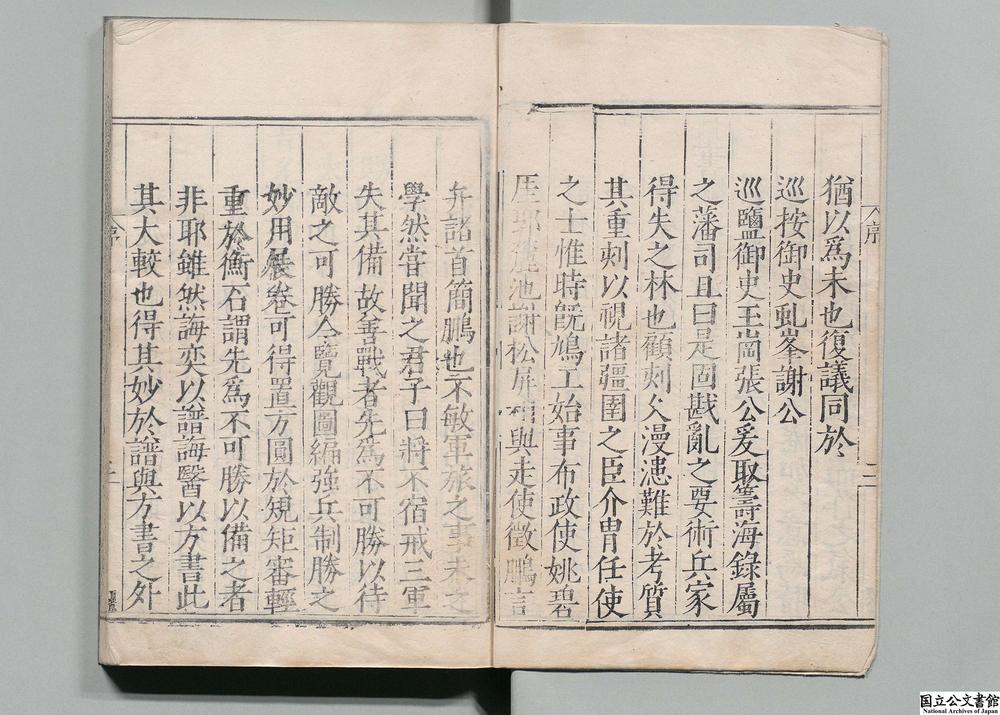 猶以爲未也復議同於
巡按御史虬峯謝公
巡鹽御史玉崗張公爰取籌海錄屬
之藩司且曰是固戡亂之要術兵家
得失之林也顧刻久漫漶難於考質
其重刺以視諸疆圉之臣介冑任使
之士惟時旣鳩工始事布政使姚碧
厓耶鹿池謝松屏相與走使徵鵬言
弁諸首簡鵬也不敏軍旅之事未之
學然嘗聞之君子曰將不宿戒三軍
失其備故善戰者先爲不可勝以待
敵之可勝今覽觀圖編強兵制勝之
妙用展卷可得置方圓於規矩審輕
重於衡石謂先爲不可勝以備之者
非耶雖然誨奕以譜誨醫以方書此
其大較也得其妙於譜與方書之外
序
二
序
三
国立公文書館
National Archives of Japan